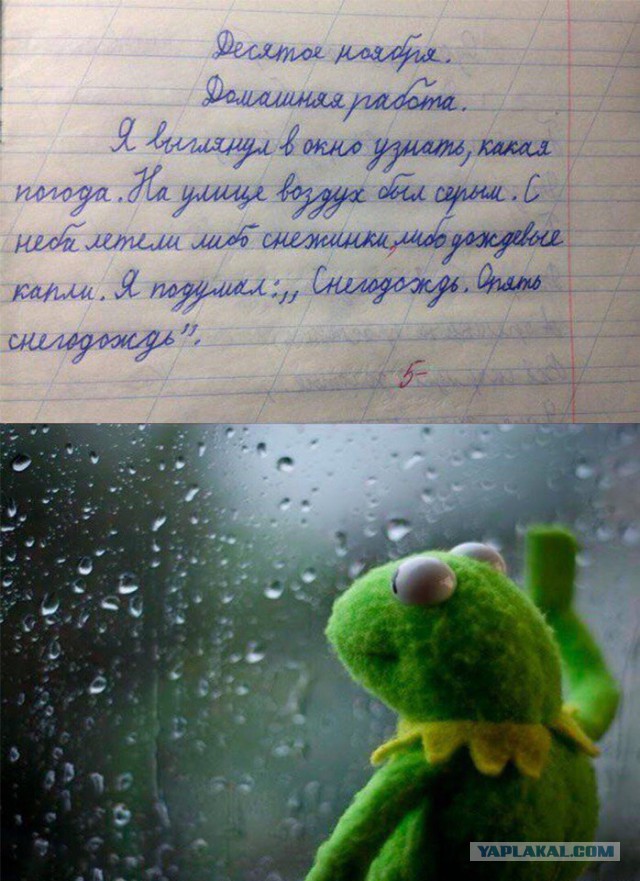 Десятое ноября.
Домашняя работа.
Я выглянул в окно узнать, какая
погода. На улице воздух был серым. С
неба летели либо снежинки, либо дождевые
капли. Я подумал: ,, Снегодождь. Опять
снегодождь".
5-
YAPLAKAL.COM